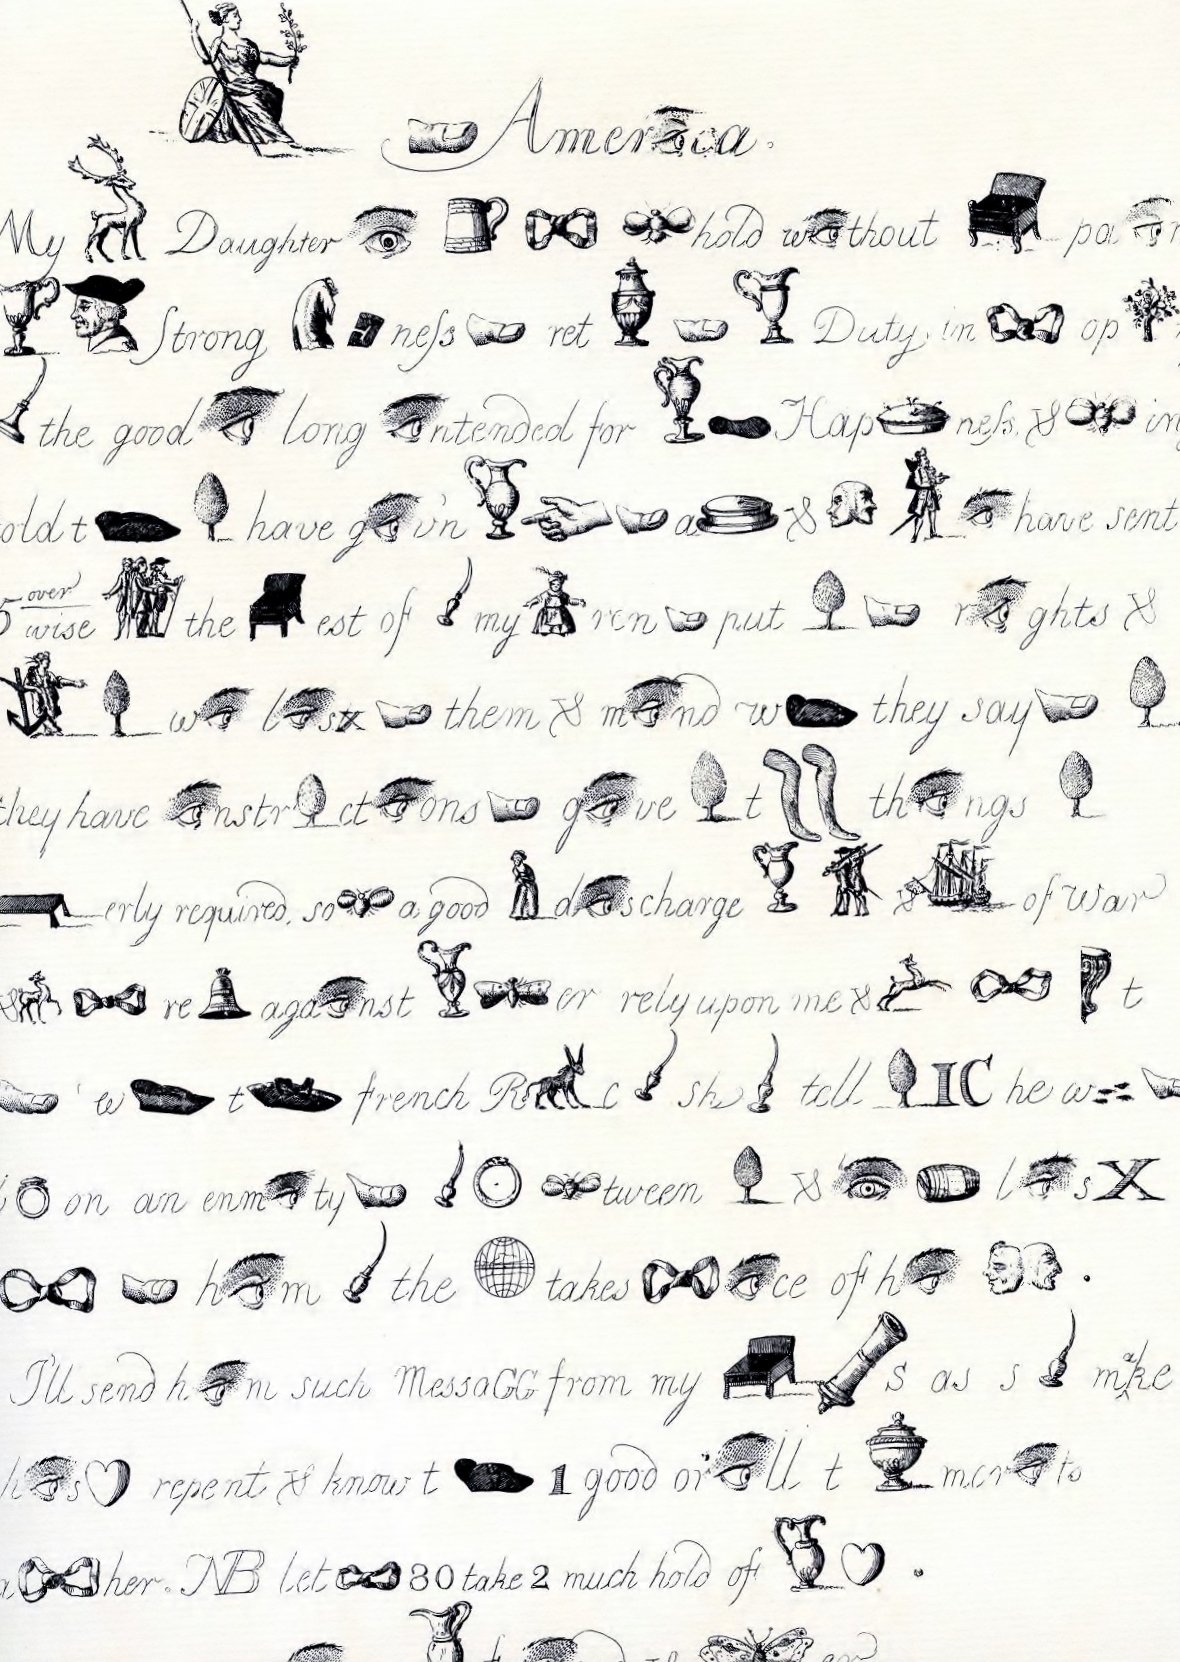 America.
My Daughter hold w thout pa n
Strong neſs ret Duty, in op
the good long ntended for Hap neſs. & in
old t have g v'n a & have sent
5 over wise the est of my ren put r ghts &
w l sx them & m nd w they say
they have nstr ct ons g ve t th ngs
erly required, so a good d scharge & of War
& re aga nst er rely upon me & t
w t french R c sh tell IC he w==
on an enm ty tween & l s X
h m the takes ce of h .
I'll send h m such MessaGG from my s as s make
h s repent & know t 1 good or ll t mer ts
a her. NB let 80 take 2 much hold of .
t er